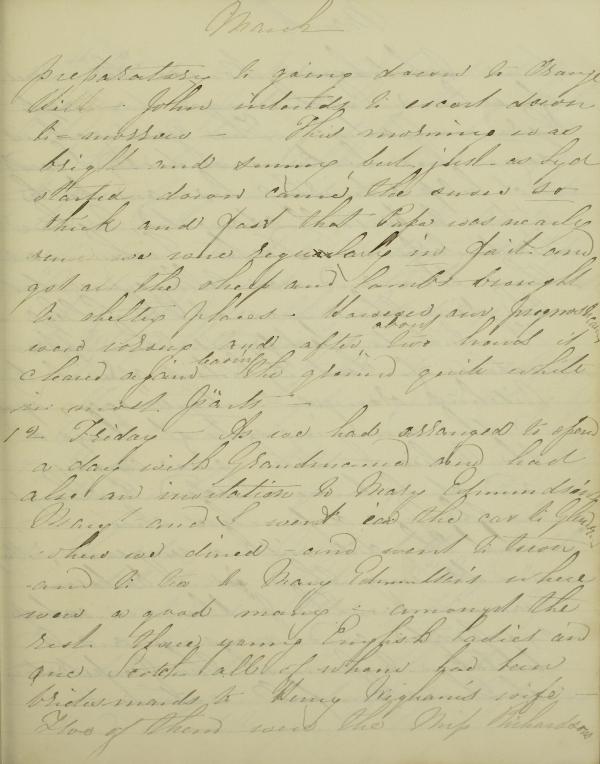 March
preparatory to going down to Grange
John intends to escort down
to-morrow – This morning was
bright and sunny but just as Lyd
started down came the snow so
thick and fast that Papa was nearly
sure we were regularly in for it and
got all the sheep and lambs brought
to shelter places – However our prognostications
were wrong and after about two hours it
cleared again leaving the ground quite white
in most parts –
12 Friday – As we had arranged to spend
a day with Grandmama and had
also an invitation to Mary Edmundson's
Mary and I went on the car to
where we dined – and went to town
and to tea to Mary Edmundson's where
were a good many: amongst the
rest three young English ladies and
one Scotch all of whom had been
bridesmaids to Henry wife –
Two of them were the Miss Richardsons